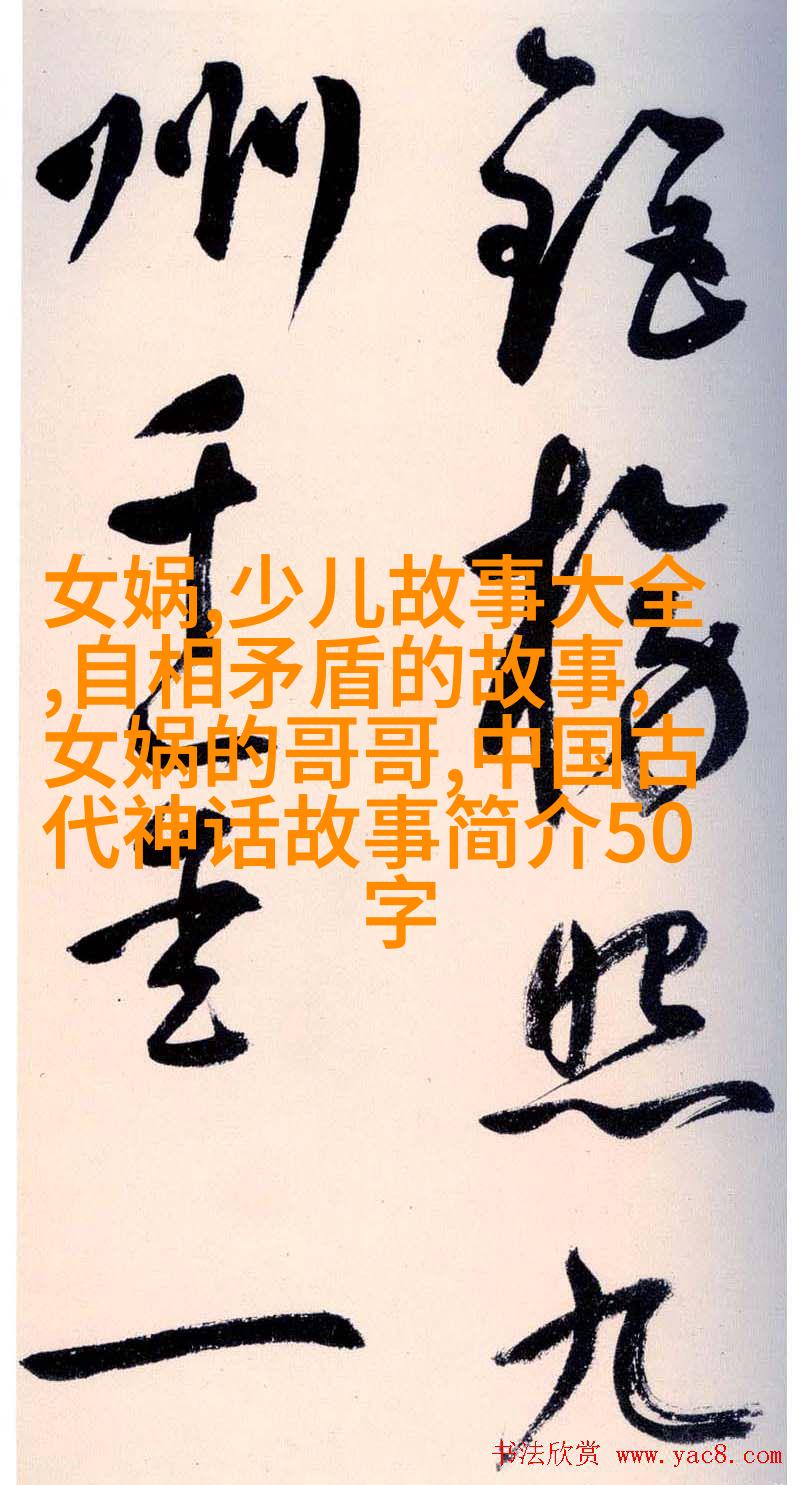 照九
州
一
女娲,少儿故事大全
,自相矛盾的故事,
女娲的哥哥,中国古
代神话故事简介50
字
书法欣赏 www.yac8.com